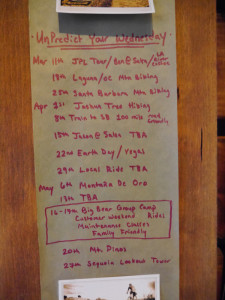 UnPredict Your Wednesday
Mar 11th JPL Tour/Ben@Solvo/LA River
18th Laguna/OC Mtn Biking
25th Santa Barbara Mtn Biking
Apr 1st Joshua Tree Hiking
8th Train to SD 200 mile
15th Jason@Solvo TBA
22nd Earth Day/Vegki
29th Local Ride TBA
May 6th Montaña De Oro
13th TBA
16-17th Big Bear Group Camp
Customer Weekend Rides
Maintenance Classes
Family Friendly
20th Mt. Pinos
27th Sequoia Lookout Tower